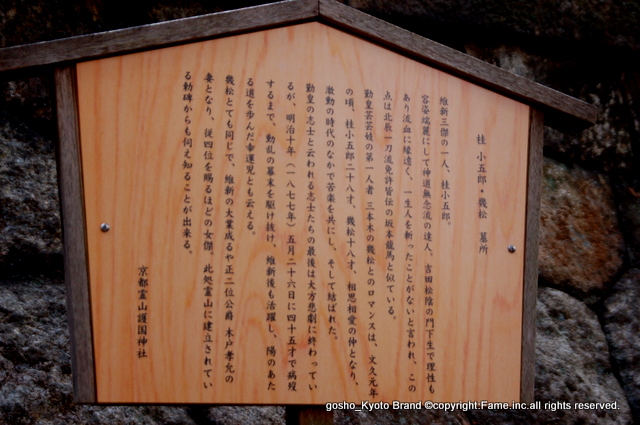 桂 小五郎・幾松 墓所
維新三傑の一人、桂小五郎。
容姿端麗にして神道無念流の達人、吉田松陰の門下生で理性も
あり流血に縁遠く、一生人を斬ったことがないと言われ、この
点は北辰一刀流免許皆伝の坂本龍馬と似ている。
勤皇芸芸妓の第一人者 三本木の幾松とのロマンスは、文久元年
の頃、桂小五郎二十八才、幾松十八才、相思相愛の仲となり、
激動の時代のなかで苦楽を共にし、そして結ばれた。
勤皇の志士と云われる志士たちの最後は大方悲劇に終わってい
るが、明治十年(一八七七年)五月二十六日に四十五才で病歿
するまで、動乱の幕末を駆け抜け、維新後も活躍し、陽のあた
る道を歩んだ幸運児とも云える。
幾松とても同じで、維新の大業成るや正二位公爵 木戸孝允の
妻となり、従四位を賜るほどの女傑。此処霊山に建立されてい
る勅碑からも伺え知ることが出来る。
京都霊山護国神社
gosho_Kyoto Brand ©copyright.Fame.inc.all rights reserved.